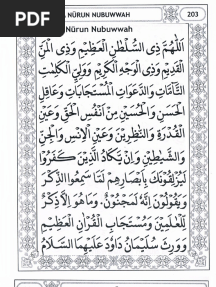 PDF
NÛRUN NUBUWWAH
203
Nûrun Nubuwwah
اَللّٰهُمَّ ذِى السُّلْطٰنِ الْعَظِيْمِ وَذِى الْمَنِّ
الْقَدِيْمِ وَذِى الْوَجْهِ الْكَرِيْمِ وَوَلِيِّ الْكَلِمٰتِ
التَّآمَّاتِ وَالدَّعَوَاتِ الْمُسْتَجَابَاتِ وَعَاقِلِ
الْحَسَنِ وَالْحُسَيْنِ مِنْ اَنْفُسِ الْحَقِّ وَعَيْنِ
الْقُدْرَةِ وَالنَّظِرِيْنَ وَعَيْنِ الْاِنْسِ وَالْجِنِّ
وَالشَّيٰطِيْنِ وَاِنْ يَكَادُ الَّذِيْنَ كَفَرُوْا
لَيُزْلِقُوْنَكَ بِاَبْصَارِهِمْ لَمَّا سَمِعُوا الذِّكْرَ
وَيَقُوْلُوْنَ اِنَّهُ لَمَجْنُوْنٌ. وَمَا هُوَ اِلَّا ذِكْرٌ
لِلْعٰلَمِيْنَ وَمُسْتَجَابِ الْقُرْاٰنِ الْعَظِيْمِ
وَوَرِثَ سُلَيْمَانُ دَاوٗدَ عَلَيْهِمَا السَّلَامُ